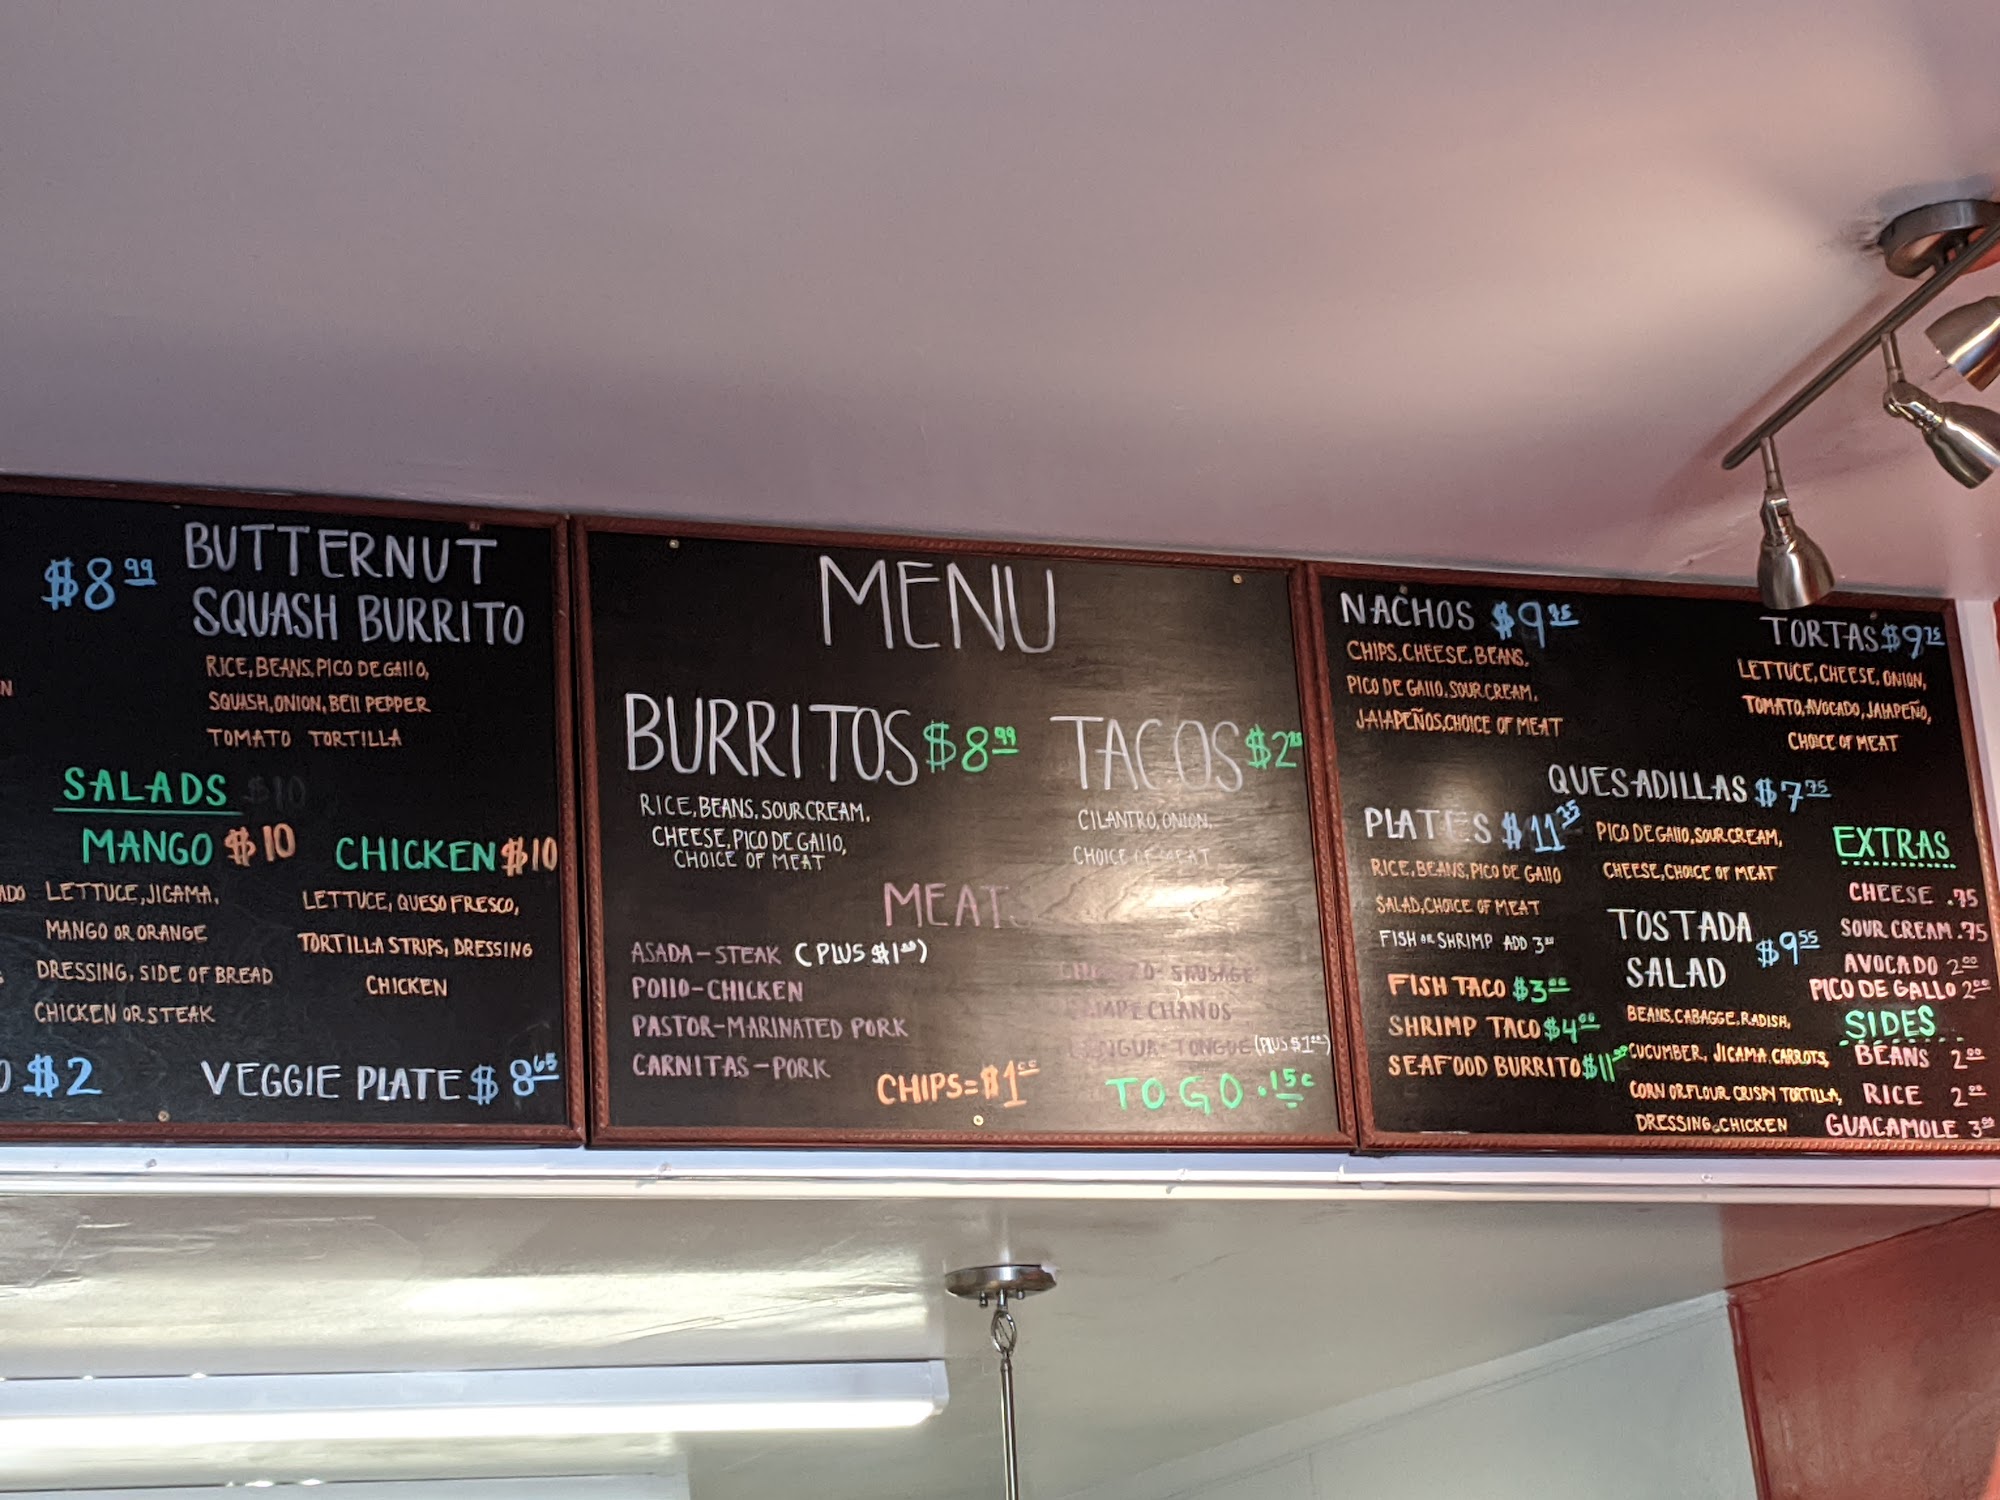 $8.99
BUTTERNUT
SQUASH BURRITO
RICE, BEANS, PICO DE GAllO,
SQUASH, ONION, BEll PEPPER
TOMATO TORTILLA
SALADS $10
MANGO $10
LETTUCE, JICAMA,
MANGO OR ORANGE
DRESSING, SIDE OF BREAD
CHICKEN OR STEAK
CHICKEN $10
LETTUCE, QUESO FRESCO,
TORTILLA STRIPS, DRESSING
CHICKEN
$2
VEGGIE PLATE $8.65
MENU
BURRITOS $8.99
RICE, BEANS, SOUR CREAM,
CHEESE, PICO DE GAllO,
CHOICE OF MEAT
TACOS $2
CILANTRO, ONION,
CHOICE OF MEAT
MEATS
ASADA-STEAK (PLUS $1.00)
POllO-CHICKEN
PASTOR-MARINATED PORK
CARNITAS-PORK
SAUSAGE
LENGUA-TONGUE (PLUS $1.00)
CHIPS=$1.00
TO GO .15¢
NACHOS $9.75
CHIPS, CHEESE, BEANS,
PICO DE GAllO, SOUR CREAM,
JAlAPEÑOS, CHOICE OF MEAT
TORTAS $9.75
LETTUCE, CHEESE, ONION,
TOMATO, AVOCADO, JAlAPEÑO,
CHOICE OF MEAT
QUESADILLAS $7.75
PICO DE GAllO, SOUR CREAM,
CHEESE, CHOICE OF MEAT
PLATES $11
RICE, BEANS, PICO DE GAllO
SALAD, CHOICE OF MEAT
FISH OR SHRIMP ADD 3
FISH TACO $3.00
SHRIMP TACO $4.00
SEAFOOD BURRITO $11
TOSTADA
SALAD $9.55
BEANS, CABAGGE, RADISH,
CUCUMBER, JICAMA CARROTS,
CORN OR FLOUR CRISPY TORTILLA,
DRESSING, CHICKEN
EXTRAS
CHEESE .75
SOUR CREAM .75
AVOCADO 2.00
PICO DE GALLO 2.00
SIDES
BEANS 2.00
RICE 2.00
GUACAMOLE 3